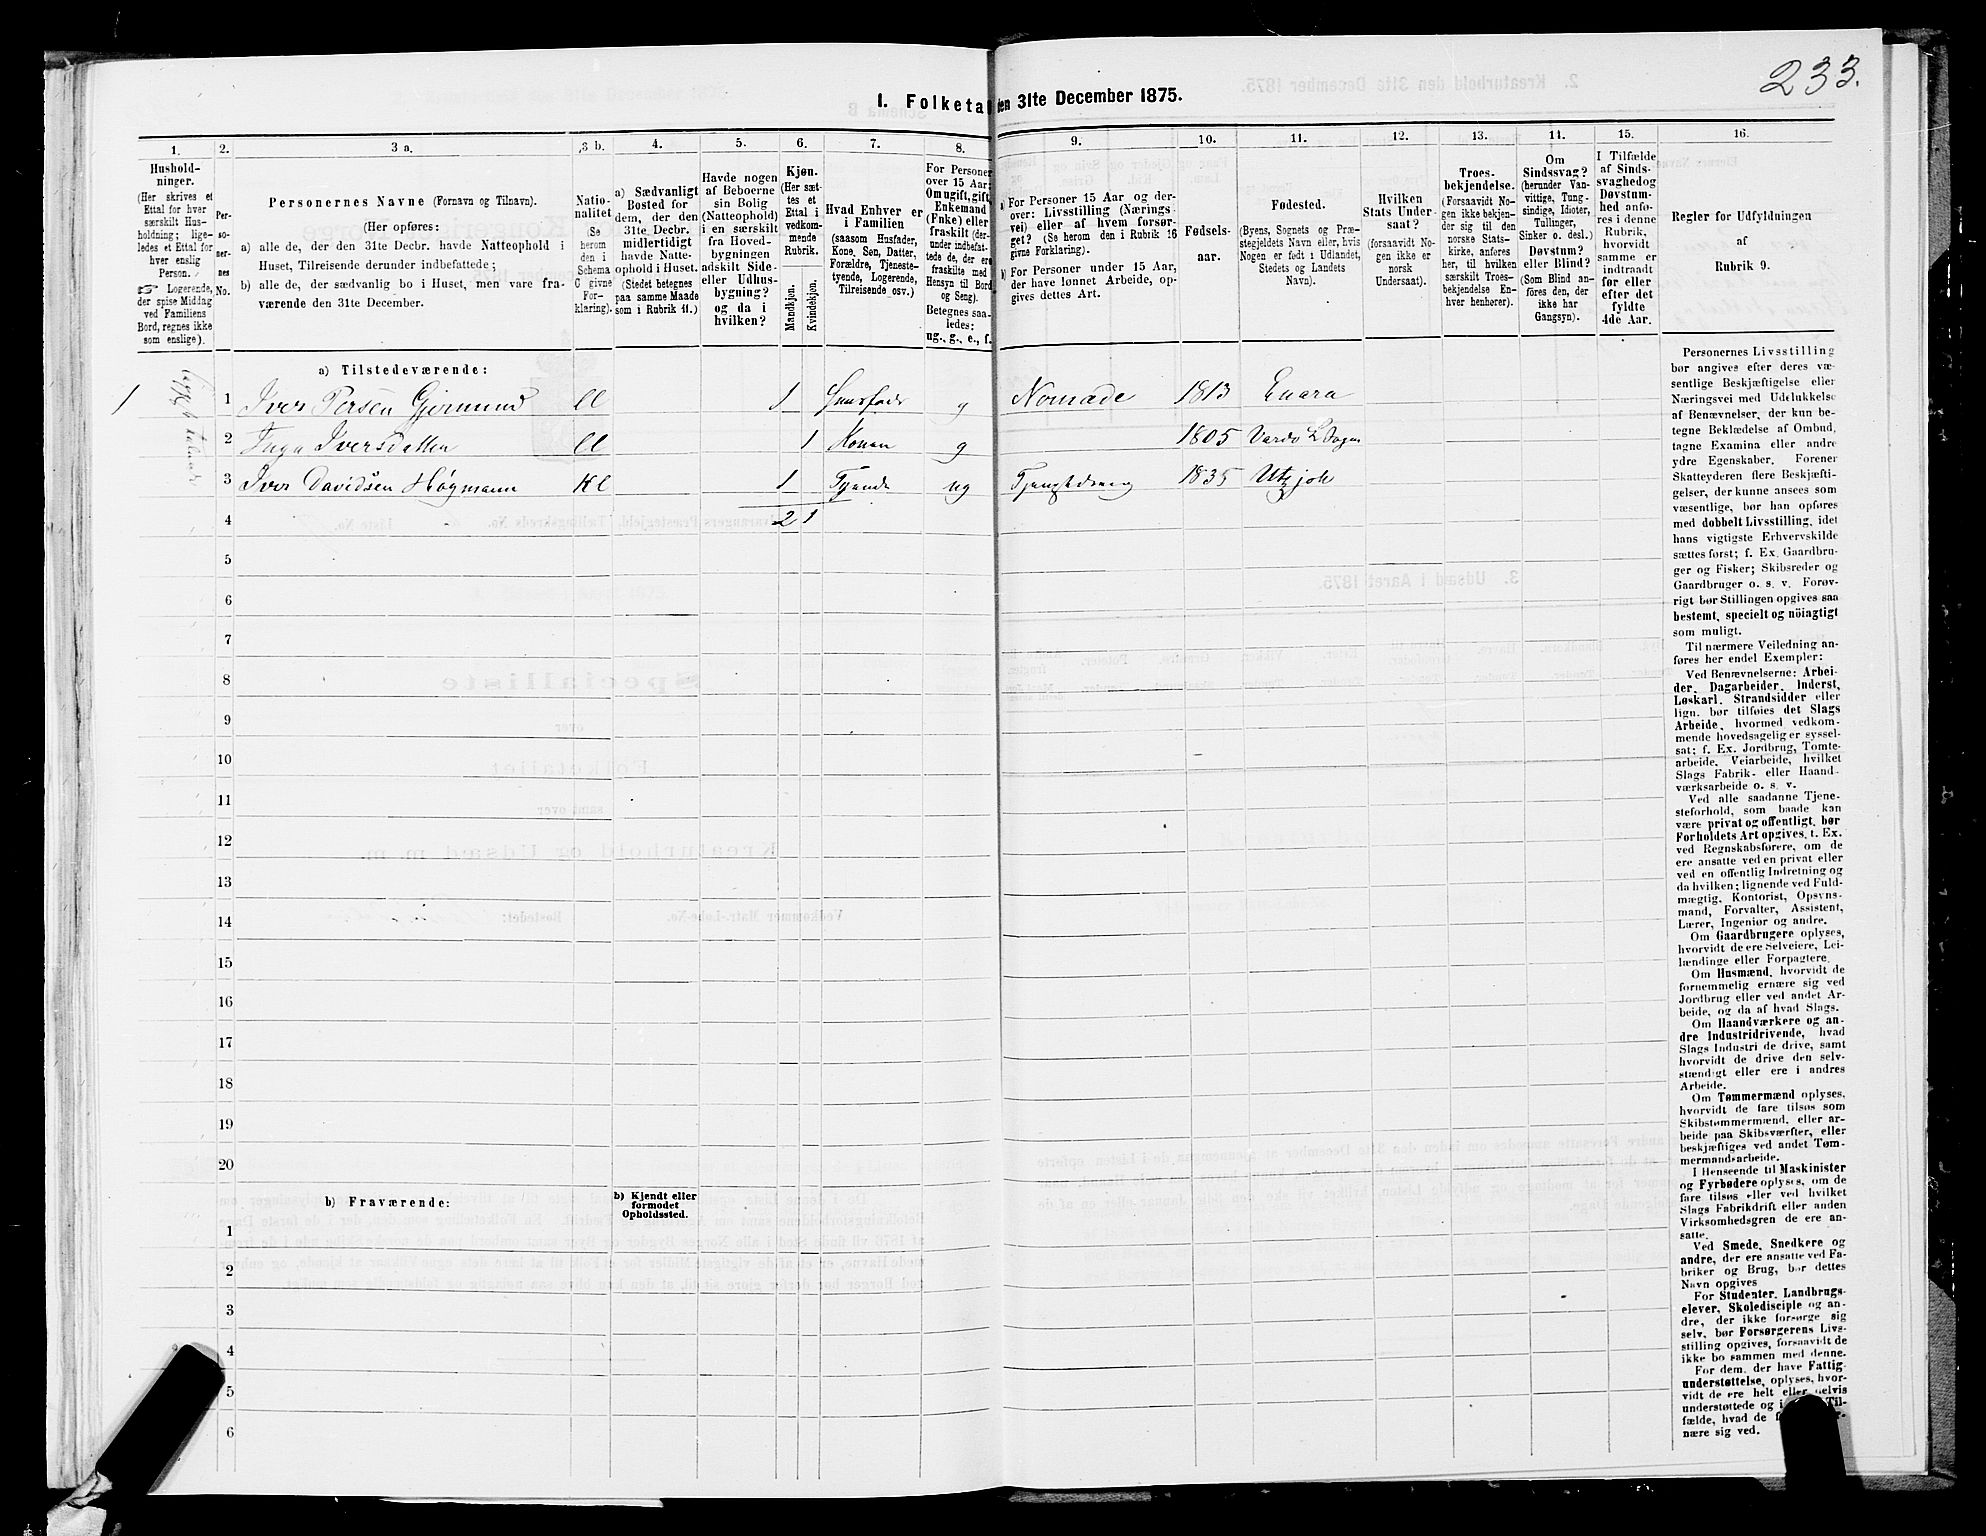 233.
1. Folketa
den 31te December 1875.
1.
2.
3 a.
3 b.
4.
5.
6.
7.
8.
9.
10.
11.
12.
13.
14.
15.
16.
Hushold-
ninger.
(Her skrives et
Ettal for hver
særskilt Hus-
holdning; lige-
ledes et Ettal for
hver enslig
Person.
Logerende,
der spise Middag
ved Familiens
Bord, regnes ikke
som enslige).
Per-
so-
ner-
nes
No.
Personernes Navne (Fornavn og Tilnavn).
(Her opføres:
a) alle de, der den 31te Decbr. havde Natteophold i
Huset, Tilreisende derunder indbefattede;
b) alle de, der sædvanlig bo i Huset, men vare fra-
værende den 31te December.
Natio-
nalitet
(Se
herom
den i
Schema
C givne
For-
klaring).
a) Sædvanligt
Bosted for
dem, der den
31te Decbr.
midlertidigt
havde Natte-
ophold i Huset.
(Stedet betegnes
paa samme Maade
som i Rubrik 11.)
Havde nogen
af Beboerne
sin Bolig
(Natteophold)
i en særskilt
fra Hoved-
bygningen
adskilt Side-
eller Udhus-
bygning?
og da i
hvilken?
Kjøn.
(Her sæt-
tes et
Ettal i
vedkom-
mende
Rubrik.
Mandkjøn.
Kvindekjøn.
Hvad Enhver er
i Familien
(saasom Husfader,
Kone, Søn, Datter,
Forældre, Tjeneste-
tyende, Logerende,
Tilreisende osv.)
For Personer
over 15 Aar:
Om ugift, gift,
Enkemand
(Enke) eller
fraskilt (der-
under indbefat-
tede de, der ere
fraskilte med
Hensyn til Bord
og Seng).
Betegnes saa-
ledes:
ug., g., e., f.
a) For Personer 15 Aar og der-
over: Livsstilling (Nærings-
vei) eller af hvem forsør-
get? (Se herom den i Rubrik 16
givne Forklaring).
b) For Personer under 15 Aar,
der have lønnet Arbeide, op-
gives dettes Art.
Fødsels-
aar.
Fødested.
(Byens, Sognets og Præ-
stegjeldets Navn eller, hvis
Nogen er født i Udlandet,
Stedets og Landets
Navn).
Hvilken
Stats Under-
saat?
(forsaavidt No-
gen ikke er
norsk
Undersaat).
Troes-
bekjendelse.
(Forsaavidt No-
gen ikke bekjen-
der sig til den
norske Stats-
kirke, anføres
her, til hvilken
særskilt Troes-
bekjendelse En-
hver henhører).
Om
Sindssvag?
(herunder Van-
vittige, Tung-
sindige, Idioter,
Tullinger,
Sinker o. desl.)
Døvstum?
eller Blind?
(Som Blind an-
føres den, der
ikke har
Gangsyn).
I Tilfælde
af Sinds-
svaghed og
Døvstum-
hed anfø-
res i denne
Rubrik,
hvorvidt
samme er
indtraadt
før eller
efter det
fyldte
4de Aar.
Regler for Udfyldningen
af
Rubrik 9.
a) Tilstedeværende:
1
1 Iver Persen Gjermund ll 1 Huusfader g Nomade 1813 Enara
2 Inga Iversdatter ll 1 Konen g 1805 Vardø L Sogn
3 Iver Davidsen Høgmann Kl 1 Tyende ug 1835 Utsjok
4 2 1
5
6
7
8
9
10
11
12
13
14
15
16
17
18
19
20
b) Fraværende:
b) Kjendt eller
formodet
Opholdssted.
1
2
3
4
5
6
Personernes Livsstilling
bør angives efter deres væ-
sentlige Beskjæftigelse eller
Næringsvei med Udelukkelse
af Benævnelser, der kun be-
tegne Beklædelse af Ombud,
tagne Examina eller andre
ydre Egenskaber. Forener
Skatteyderen flere Beskjæfti-
gelser, der kunne ansees som
væsentlige, bør han opføres
med dobbelt Livsstilling, idet
hans vigtigste Erhvervskilde
sættes først; f. Ex. Gaardbru-
ger og Fisker; Skibsreder og
Gaardbruger o. s. v. Forøv-
rigt bør Stillingen opgives saa
bestemt, specielt og nöiagtigt
som muligt.
Til nærmere Veiledning an-
føres her endel Exempler:
Ved Benævnelserne: Arbei-
der, Dagarbeider, Inderst,
Løskarl, Strandsidder eller
lign. bør tilføies det Slags
Arbeide, hvormed vedkom-
mende hovedsagelig er syssel-
sat; f. Ex. Jordbrug, Tomte-
arbeide, Veiarbeide, hvilket
Slags Fabrik- eller Haand-
værksarbeide o. s. v.
Ved alle saadanne Tjene-
steforhold, som baade kan
være privat og offentligt, bør
Forholdets Art opgives, t. Ex.
ved Regnskabsførere, om de
ere ansatte ved en privat eller
ved en offentlig Indretning og
da hvilken; lignende ved Fuld-
mægtig, Kontorist, Opsyns-
mand, Forvalter, Assistent,
Lærer, Ingeniør og andre.
Om Gaardbrugere oplyses,
hvorvidt de ere Selveiere, Lei-
lændinge eller Forpagtere.
Om Husmænd, hvorvidt de
fornemmelig ernære sig ved
Jordbrug eller ved andet Ar-
beide, og da af hvad Slags.
Om Haandværkere og an-
dre Industridrivende, hvad
Slags Industri de drive, samt
hvorvidt de drive den selv-
stændigt eller ere i andres
Arbeide.
Om Tømmermænd oplyses,
hvorvidt de fare tilsøs som
Skibstømmermænd, eller ar-
beide paa Skibsværfter, eller
beskjæftiges ved andet Tøm-
mermandsarbeide.
I Henseende til Maskinister
og Fyrbødere oplyses, om de
fare tilsøs eller ved hvilket
Slags Fabrikdrift eller anden
Virksomhedsgren de ere an-
satte.
Ved Smede, Snedkere og
andre, der ere ansatte ved Fa-
briker og Brug, bør dettes
Navn opgives
For Studenter, Landbrugs-
elever, Skoledisciple og an-
dre, der ikke forsørge sig
selv, bør Forsørgerens Livs-
stilling opgives, forsaavidt de
ikke bo sammen med denne.
For dem, der have Fattig-
understøttelse, oplyses, hvor-
vidt de ere helt eller delvis
understøttede og i Til-
fælde, hvad de
nære sig ved.